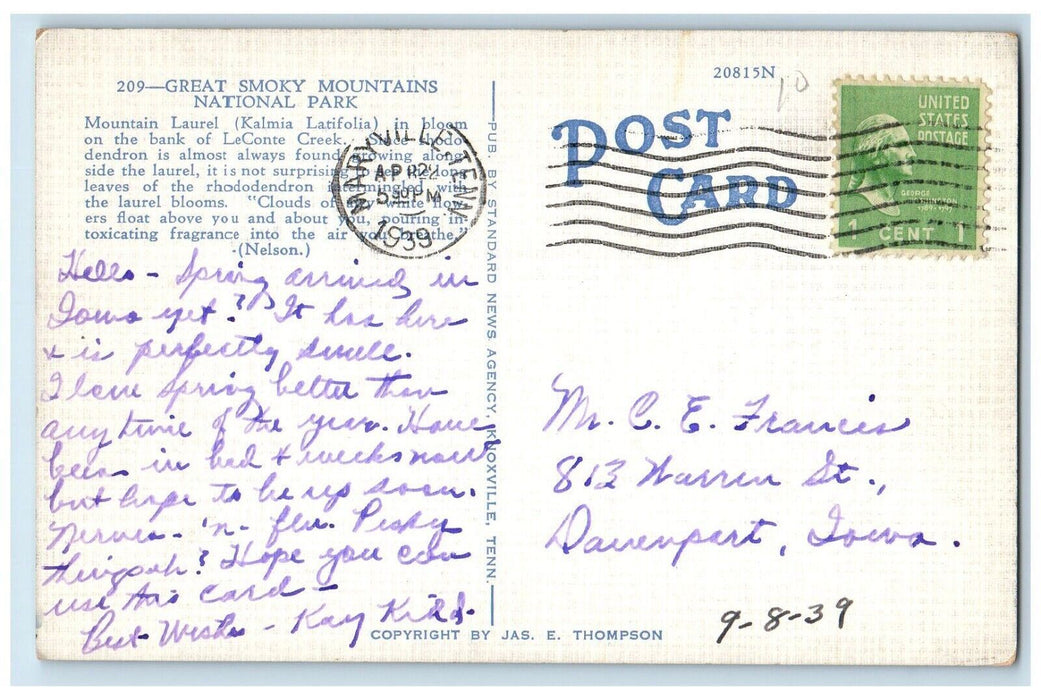 209—GREAT SMOKY MOUNTAINS
NATIONAL PARK
Mountain Laurel (Kalmia Latifolia) in bloom
on the bank of LeConte Creek. Since rhodo-
dendron is almost always found growing along
side the laurel, it is not surprising to see long
leaves of the rhododendron with
the laurel blooms. "Clouds of white flow-
ers float above you and about you, pouring in-
toxicating fragrance into the air you breathe."
-(Nelson.)
Hello - Spring arrived in
Iowa yet? It has here
& is perfectly swell.
I love Spring better than
any time of the year. Have
been in bed 4 weeks now
but hope to be up soon.
Nerves - 'n - flu. Pesky
things eh? Hope you can
use this card -
Best Wishes - Kay Kidd.
PUB. BY STANDARD NEWS AGENCY, KNOXVILLE, TENN.
COPYRIGHT BY JAS. E. THOMPSON
MARYVILLE, TENN.
APR 22
5 30 PM
1939
20815N
10
POST
CARD
UNITED
STATES
POSTAGE
GEORGE
WASHINGTON
1 CENT 1
Mr. C. E. Francis
813 Warren St.,
Davenport, Iowa.
9-8-39